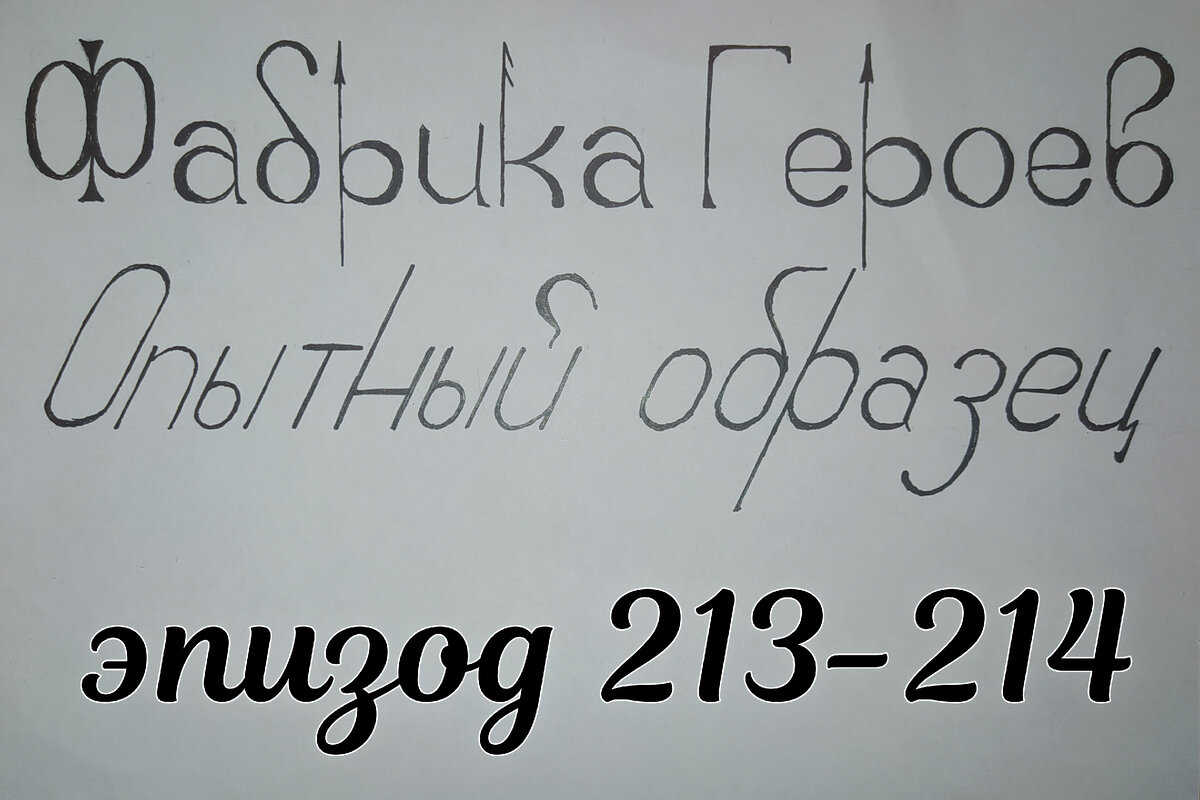 Фабрика Героев
Опытный образец
эпизод 213-214